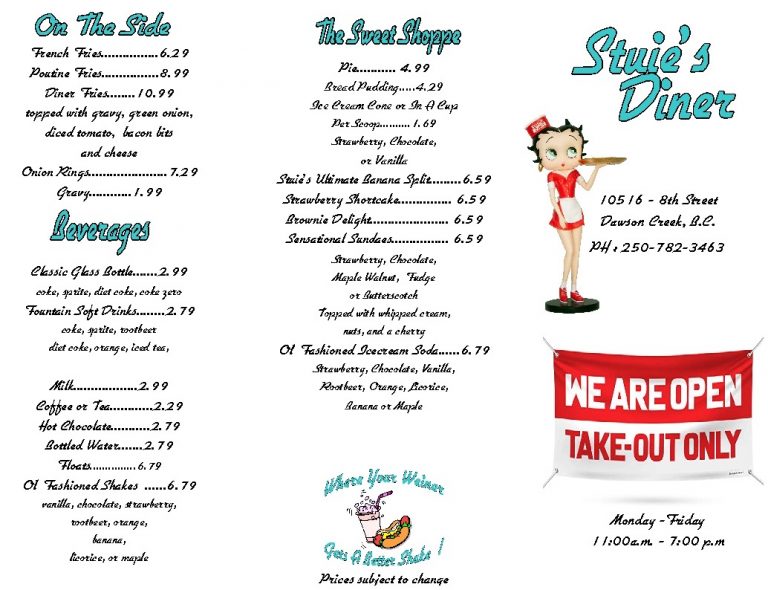 On The Side
French Fries................6.29
Poutine Fries...............8.99
Diner Fries........ 10.99
topped with gravy, green onion,
diced tomato, bacon bits
and cheese
Onion Rings...................... 7.29
Gravy............ 1.99
Beverages
Classic Glass Bottle.......2.99
coke, sprite, diet coke, coke zero
Fountain Soft Drinks........2.79
coke, sprite, rootbeer
diet coke, orange, iced tea,
Milk..................2.99
Coffee or Tea............2.29
Hot Chocolate...........2.79
Bottled Water.......2.79
Floats............... 6.79
Ol' Fashioned Shakes ......6.79
vanilla, chocolate, strawberry,
rootbeer, orange,
banana,
licorice, or maple
The Sweet Shoppe
Pie........... 4.99
Bread Pudding.....4.29
Ice Cream Cone or In A Cup
Per Scoop.......... 1.69
Strawberry, Chocolate,
or Vanilla
Stuie's Ultimate Banana Split.........6.59
Strawberry Shortcake............... 6.59
Brownie Delight...................... 6.59
Sensational Sundaes................ 6.59
Strawberry, Chocolate,
Maple Walnut, Fudge
or Butterscotch
Topped with whipped cream,
nuts, and a cherry
Ol' Fashioned Icecream Soda......6.79
Strawberry, Chocolate, Vanilla,
Rootbeer, Orange, Licorice,
Banana or Maple
Where Your Weiner
Gets A Better Shake !
Prices subject to change
Stuie's
Diner
10516 - 8th Street
Dawson Creek, B.C.
PH : 250-782-3463
WE ARE OPEN
TAKE-OUT ONLY
Monday -Friday
11:00a.m. - 7:00 p.m